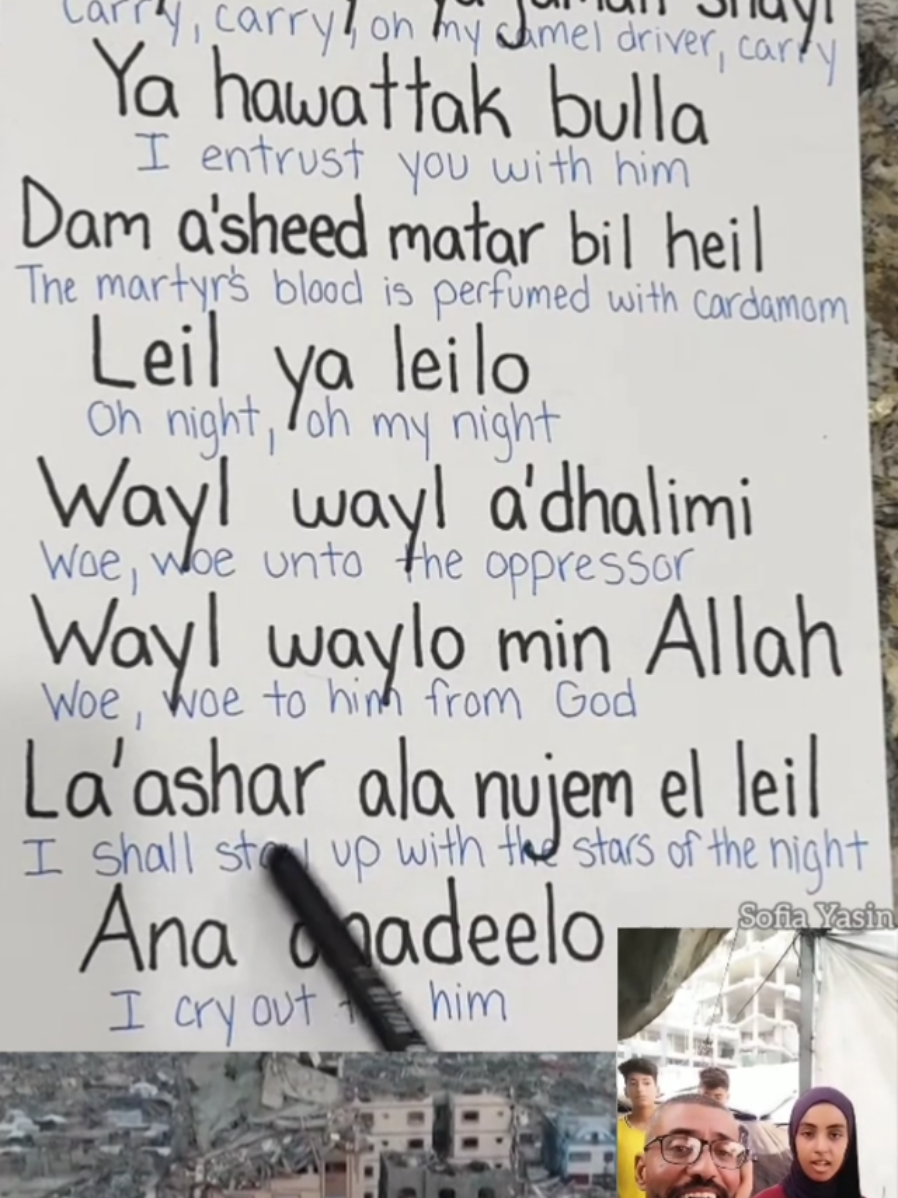 Carry, carry, oh my camel driver, carry
Ya hawattak bulla
I entrust you with him
Dam a'sheed matar bil heil
The martyr's blood is perfumed with cardamom
Leil ya leilo
Oh night, oh my night
Wayl wayl a'dhalimi
Woe, woe unto the oppressor
Wayl waylo min Allah
Woe, woe to him from God
La'ashar ala nujem el leil
I shall stay up with the stars of the night
Ana
I cry out him
Sofia Yasin